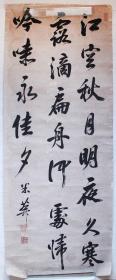 江空秋月明夜久寒
露滴扁舟何處情
吟味永佳夕
米芾